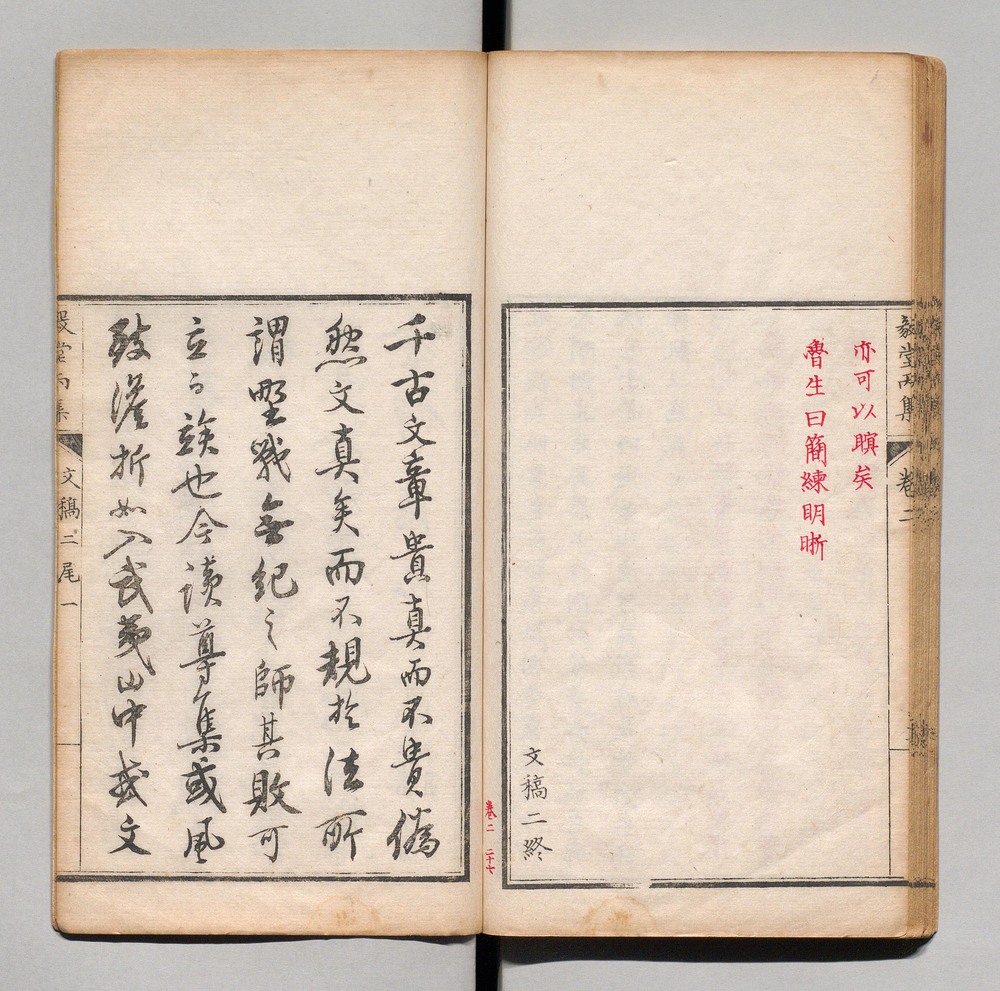 毅堂丙集 卷二
亦可以瞑矣
魯生曰簡練明晰
文稿二終
卷二 二十七
千古文章貴真而不貴僞
然文真矣而不規於法所
謂野戰無紀之師其敗可
立而竢也今讀尊集或風
致澹折如入武夷山中或文
毅堂丙集 文稿二尾 一